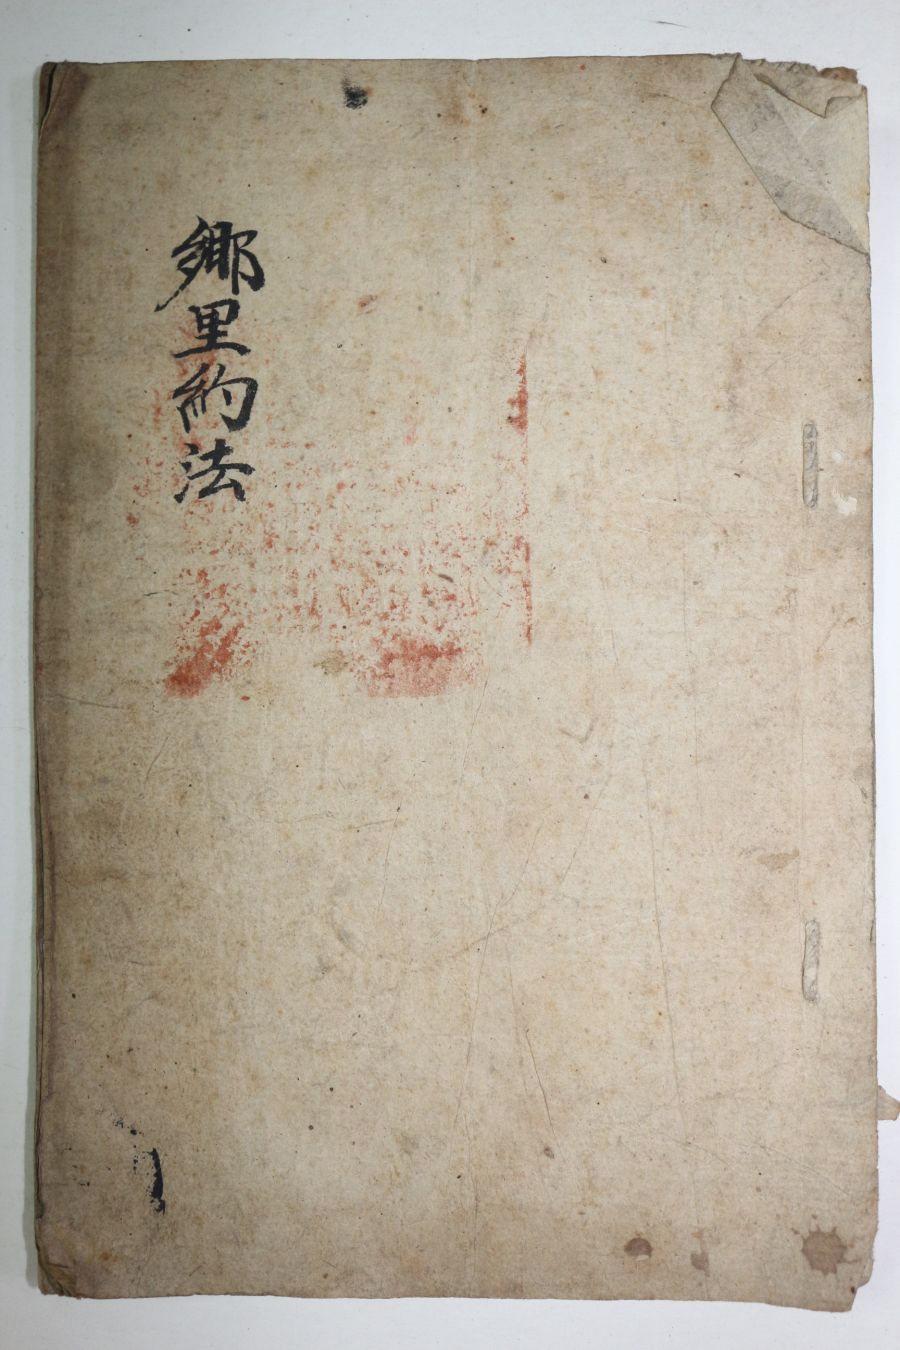 鄉里約法